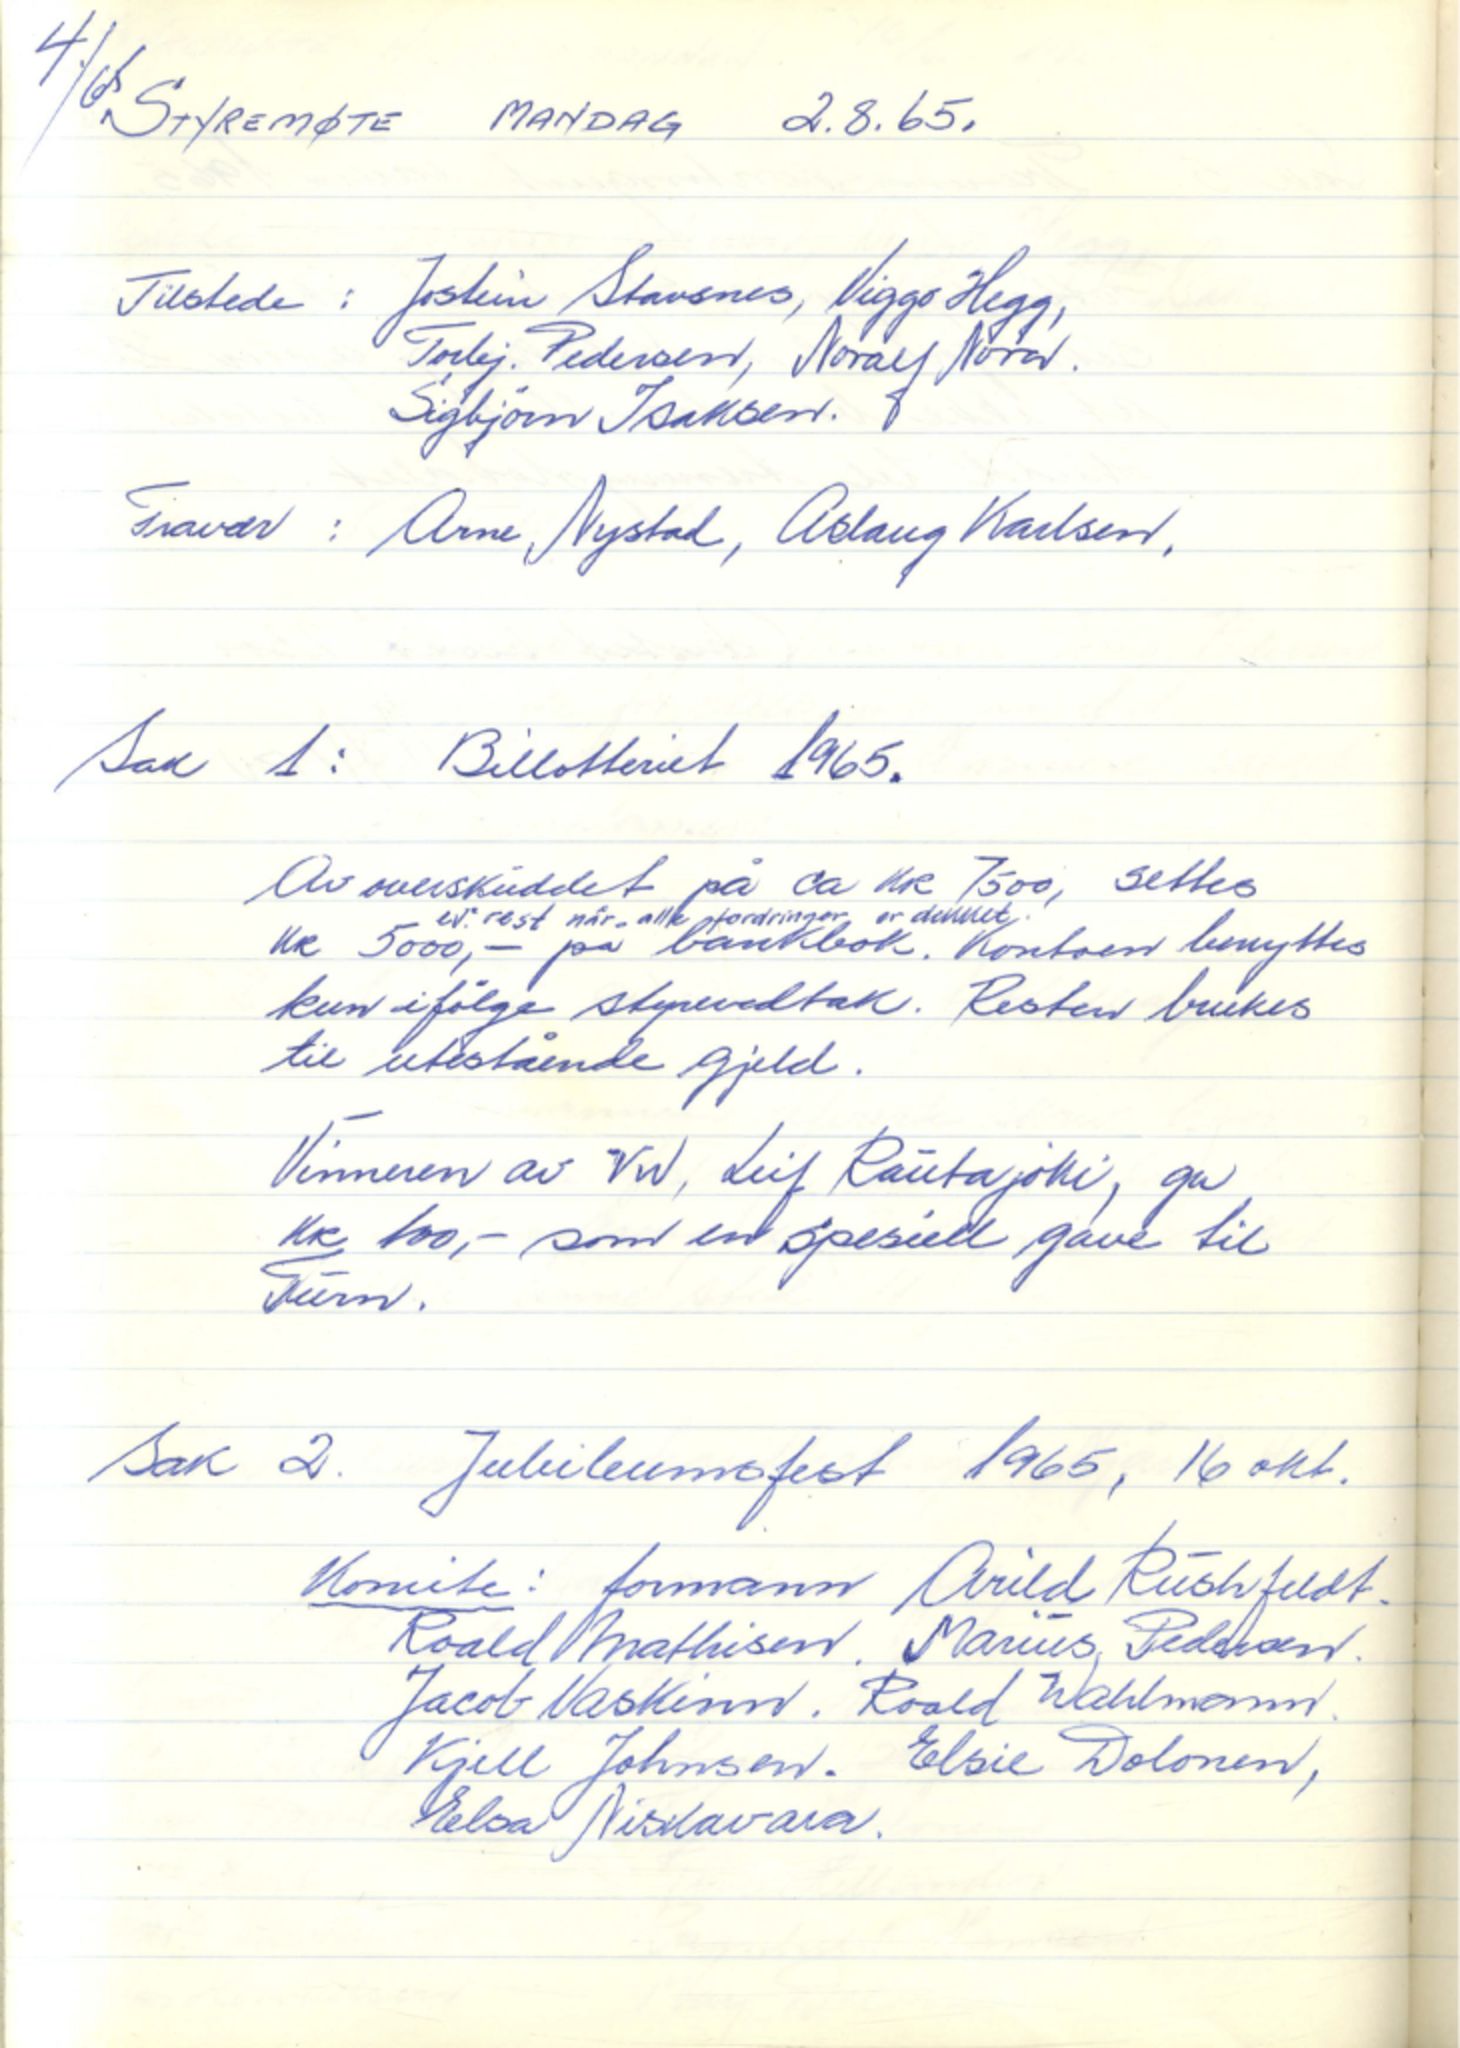 4/65
STYREMØTE MANDAG 2.8.65.
Tilstede : Jostein Stavsnes, Viggo Hegg,
Torbj. Pedersen, Noralf Nora.
Sigbjörn Isaksen.
Fravær : Arne Nystad, Aslaug Karlsen.
Sak 1 : Billotteriet 1965.
Av overskuddet på ca kr 7500, settes
ev. rest når alle fordringer er dekket.
kr 5000,- på bankbok. Kontoen benyttes
kun ifölge styrevedtak. Resten brukes
til utestående gjeld.
Vinneren av VW, Leif Rautajoki, ga
kr 100,- som en spesiell gave til
Turn.
Sak 2. Jubileumsfest 1965, 16 okt.
Komite : formann Arild Rushfeldt.
Roald Mathisen. Marius Pedersen.
Jacob Vaskinn. Roald Wahlmann.
Kjell Johnsen. Elsie Dolonen,
Elsa Niskavara.